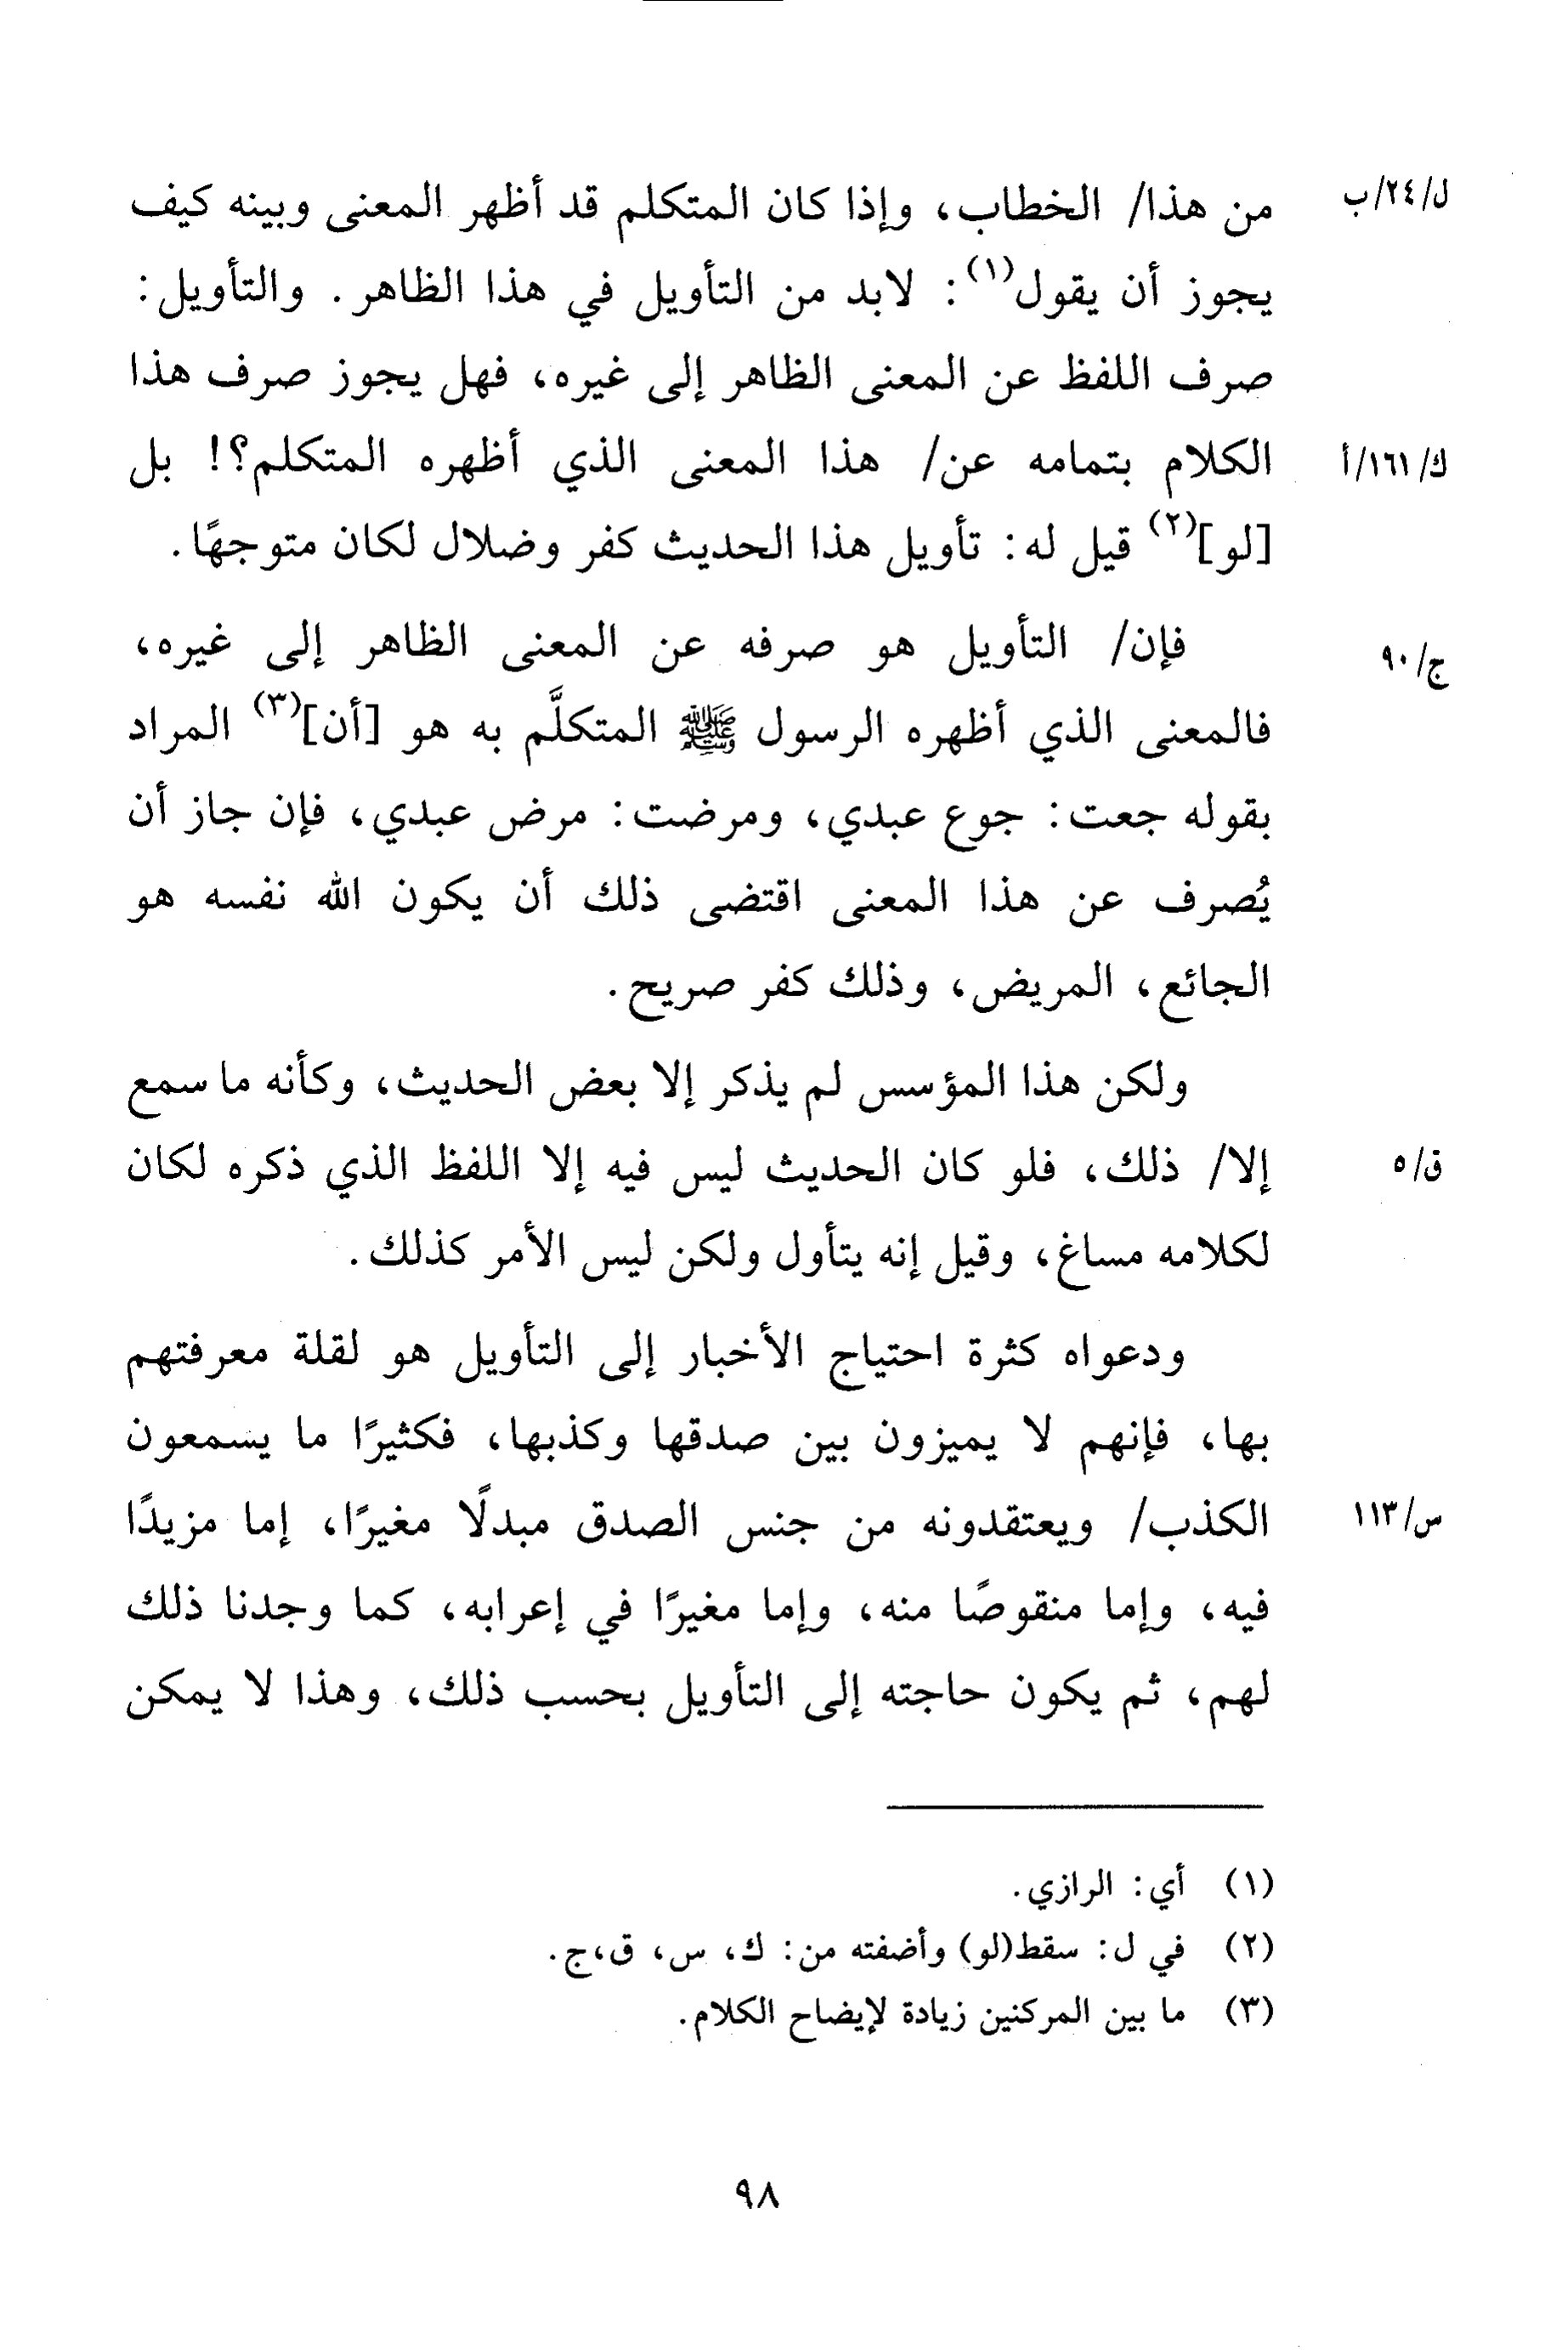 من هذا/ الخطاب، وإذا كان المتكلم قد أظهر المعنى وبينه كيف ل/٢٤/ب
يجوز أن يقول(١): لابد من التأويل في هذا الظاهر. والتأويل:
صرف اللفظ عن المعنى الظاهر إلى غيره، فهل يجوز صرف هذا
الكلام بتمامه عن/ هذا المعنى الذي أظهره المتكلم؟! بل ك/١٦١/أ
[لو](٢) قيل له: تأويل هذا الحديث كفر وضلال لكان متوجهًا.
فإن/ التأويل هو صرفه عن المعنى الظاهر إلى غيره، ج/٩٠
فالمعنى الذي أظهره الرسول ﷺ المتكلَّم به هو [أن](٣) المراد
بقوله جعت: جوع عبدي، ومرضت: مرض عبدي، فإن جاز أن
يُصرف عن هذا المعنى اقتضى ذلك أن يكون الله نفسه هو
الجائع، المريض، وذلك كفر صريح.
ولكن هذا المؤسس لم يذكر إلا بعض الحديث، وكأنه ما سمع
إلا/ ذلك، فلو كان الحديث ليس فيه إلا اللفظ الذي ذكره لكان ق/٥
لكلامه مساغ، وقيل إنه يتأول ولكن ليس الأمر كذلك.
ودعواه كثرة احتياج الأخبار إلى التأويل هو لقلة معرفتهم
بها، فإنهم لا يميزون بين صدقها وكذبها، فكثيرًا ما يسمعون
الكذب/ ويعتقدونه من جنس الصدق مبدلًا مغيرًا، إما مزيدًا س/١١٣
فيه، وإما منقوصًا منه، وإما مغيرًا في إعرابه، كما وجدنا ذلك
لهم، ثم يكون حاجته إلى التأويل بحسب ذلك، وهذا لا يمكن
(١) أي: الرازي.
(٢) في ل: سقط(لو) وأضفته من: ك، س، ق،ج.
(٣) ما بين المركنين زيادة لإيضاح الكلام.
٩٨